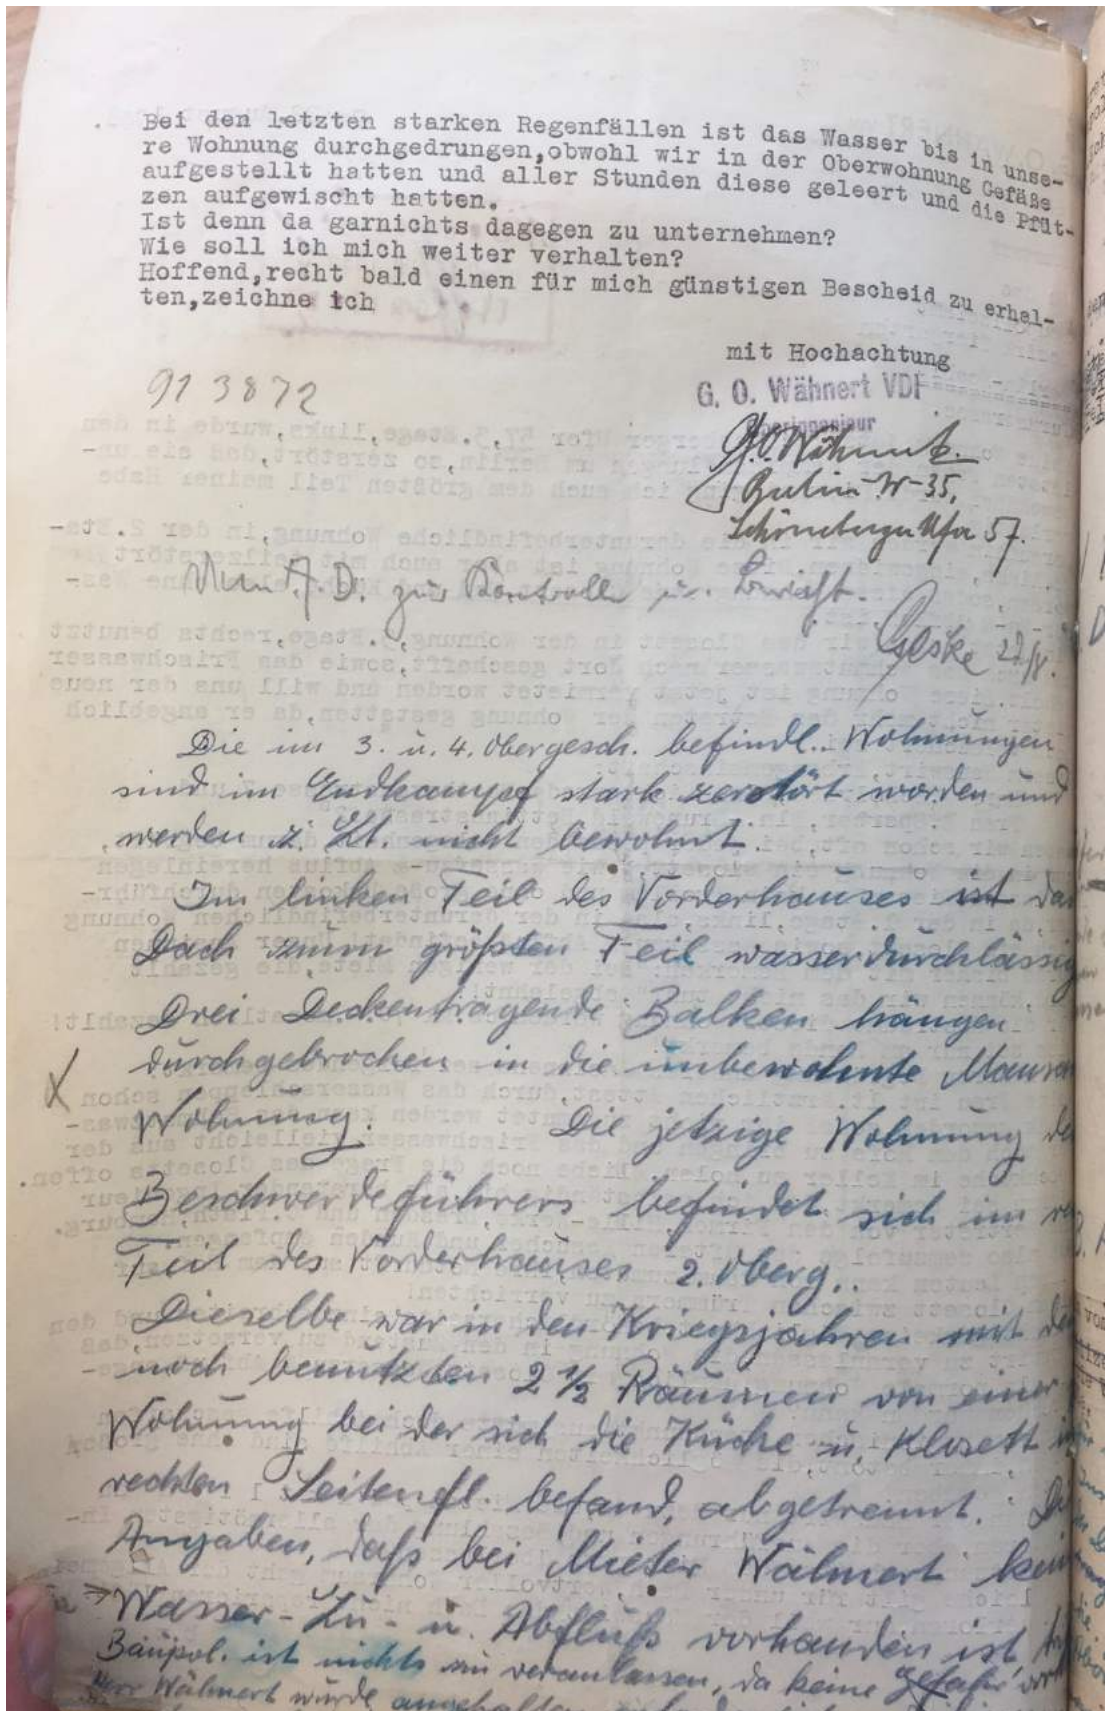 Bei den letzten starken Regenfällen ist das Wasser bis in unse-
re Wohnung durchgedrungen,obwohl wir in der Oberwohnung Gefäße
aufgestellt hatten und aller Stunden diese geleert und die Pfüt-
zen aufgewischt hatten.
Ist denn da garnichts dagegen zu unternehmen?
Wie soll ich mich weiter verhalten?
Hoffend,recht bald einen für mich günstigen Bescheid zu erhal-
ten,zeichne ich
mit Hochachtung
913872
G. O. Wähnert VDI
Oberingenieur
G.O. Wähnert.
Berlin W-35,
Schöneberger Ufer 57.
A.D. zur Kontrolle u. Bericht.
Geske 27/8.
Die im 3. u. 4. Obergesch. befindl. Wohnungen
sind im Endkampf stark zerstört worden und
werden z. Zt. nicht bewohnt.
Im linken Teil des Vorderhauses ist das
Dach zum größten Teil wasserdurchlässig
Drei Deckentragende Balken hängen
durchgebrochen in die unbewohnte Mansar
X
Wohnung. Die jetzige Wohnung de
Beschwerdeführers befindet sich im re
Teil des Vorderhauses 2. Oberg..
Dieselbe war in den Kriegsjahren mit de
noch benutzten 2 ½ Räumen von einer
Wohnung bei der sich die Küche u. Klosett i
rechten Seitenfl. befand, abgetrennt. Di
Angaben, daß bei Mieter Wähnert kein
Wasser-Zu- u. Abfluß vorhanden ist
Baupol. ist nichts zu veranlassen, da keine Gefahr
Herr Wähnert wurde angehalten